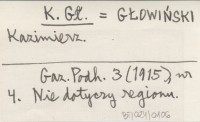 K. Gł. = GŁOWIŃSKI
Kazimierz.
Gaz. Podh. 3 (1915), nr
4. Nie dotyczy regionu.